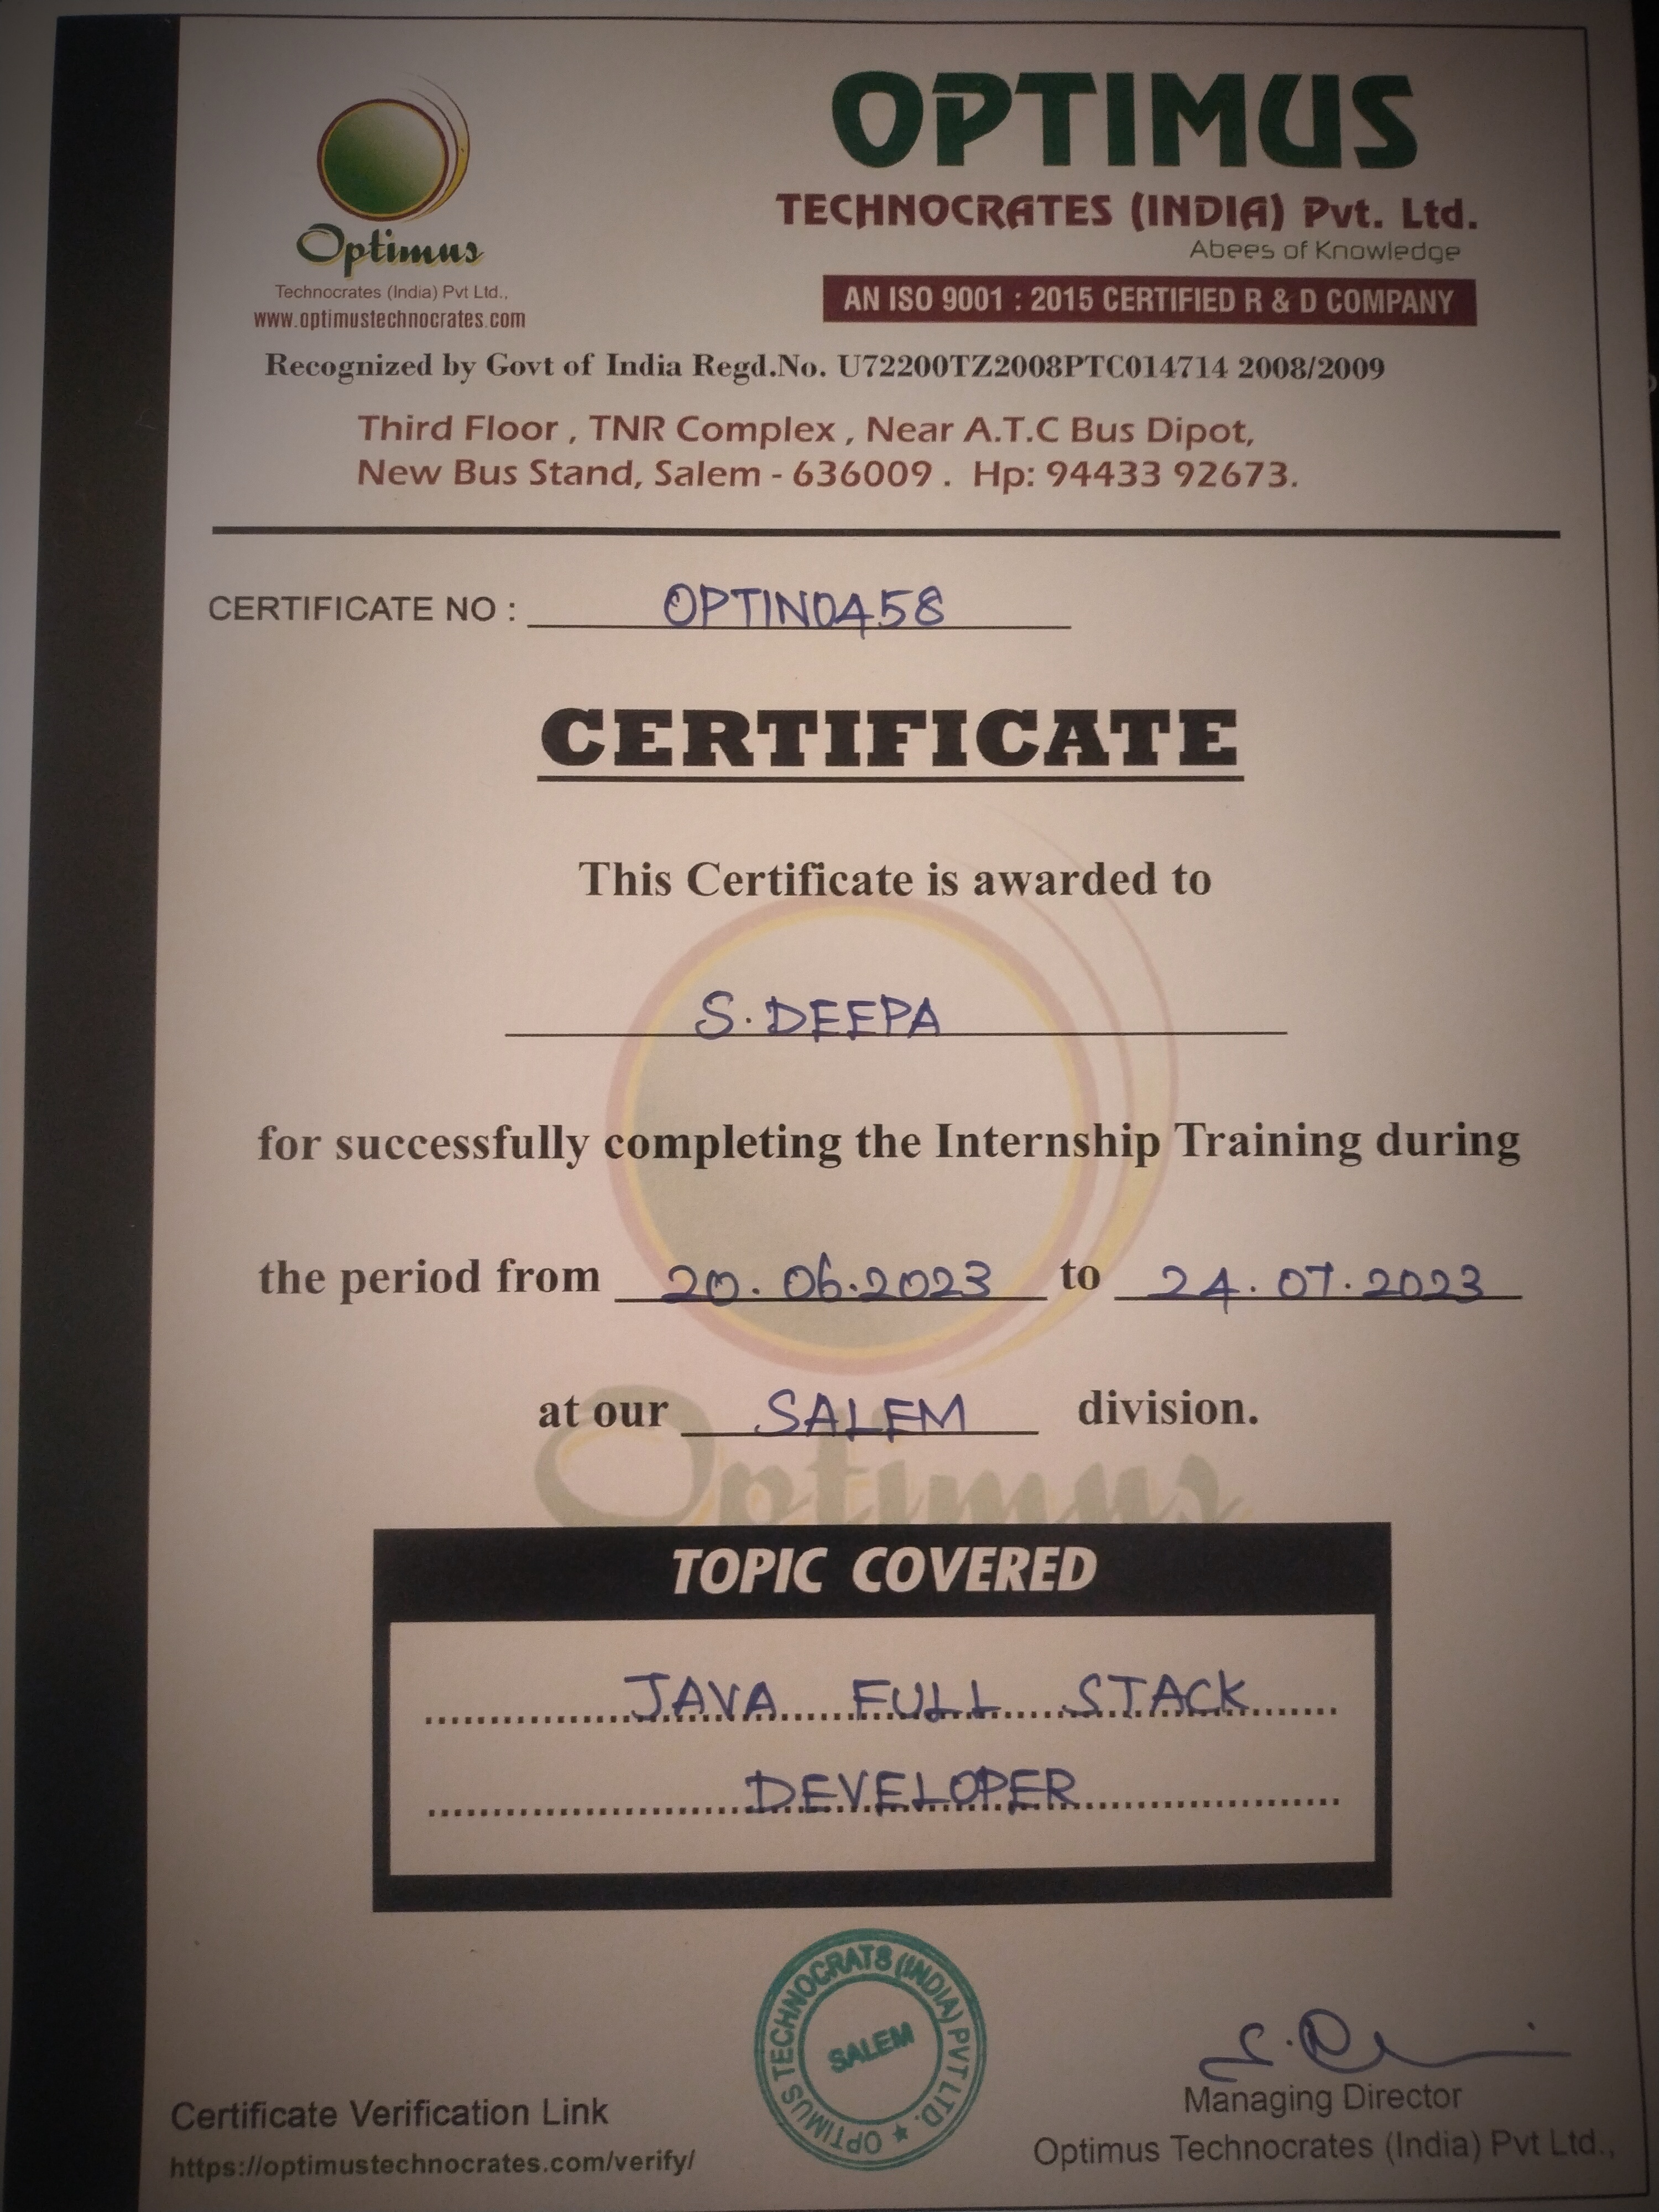 Optimus
Technocrates (India) Pvt Ltd.,
www.optimustechnocrates.com
OPTIMUS
TECHNOCRATES (INDIA) Pvt. Ltd.
Abees of Knowledge
AN ISO 9001 : 2015 CERTIFIED R & D COMPANY
Recognized by Govt of India Regd.No. U72200TZ2008PTC014714 2008/2009
Third Floor , TNR Complex , Near A.T.C Bus Dipot,
New Bus Stand, Salem - 636009 . Hp: 94433 92673.
CERTIFICATE NO : OPTIN0458
CERTIFICATE
This Certificate is awarded to
S. DEEPA
for successfully completing the Internship Training during
the period from 20.06.2023 to 24.07.2023
at our SALEM division.
Optimus
TOPIC COVERED
JAVA FULL STACK
DEVELOPER
OPTIMUS TECHNOCRATS (INDIA) PVT LTD. ★
SALEM
Certificate Verification Link
https://optimustechnocrates.com/verify/
Managing Director
Optimus Technocrates (India) Pvt Ltd.,